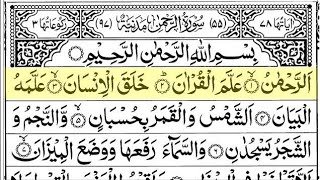 اٰیَاتُهَا ٧٨ (٥٥) سُوْرَةُ الرَّحْمٰنِ مَدَنِیَّةٌ (٩٧) رُكُوْعَاتُهَا ٣
بِسْمِ اللّٰهِ الرَّحْمٰنِ الرَّحِیْمِ
اَلرَّحْمٰنُ ۙ﴿١﴾ عَلَّمَ الْقُرْاٰنَ ؕ﴿٢﴾ خَلَقَ الْاِنْسَانَ ۙ﴿٣﴾ عَلَّمَهُ
الْبَیَانَ ﴿٤﴾ اَلشَّمْسُ وَ الْقَمَرُ بِحُسْبَانٍ ﴿٥﴾ وَّ النَّجْمُ وَ
الشَّجَرُ یَسْجُدٰنِ ﴿٦﴾ وَ السَّمَآءَ رَفَعَهَا وَ وَضَعَ الْمِیْزَانَ ۙ﴿٧﴾